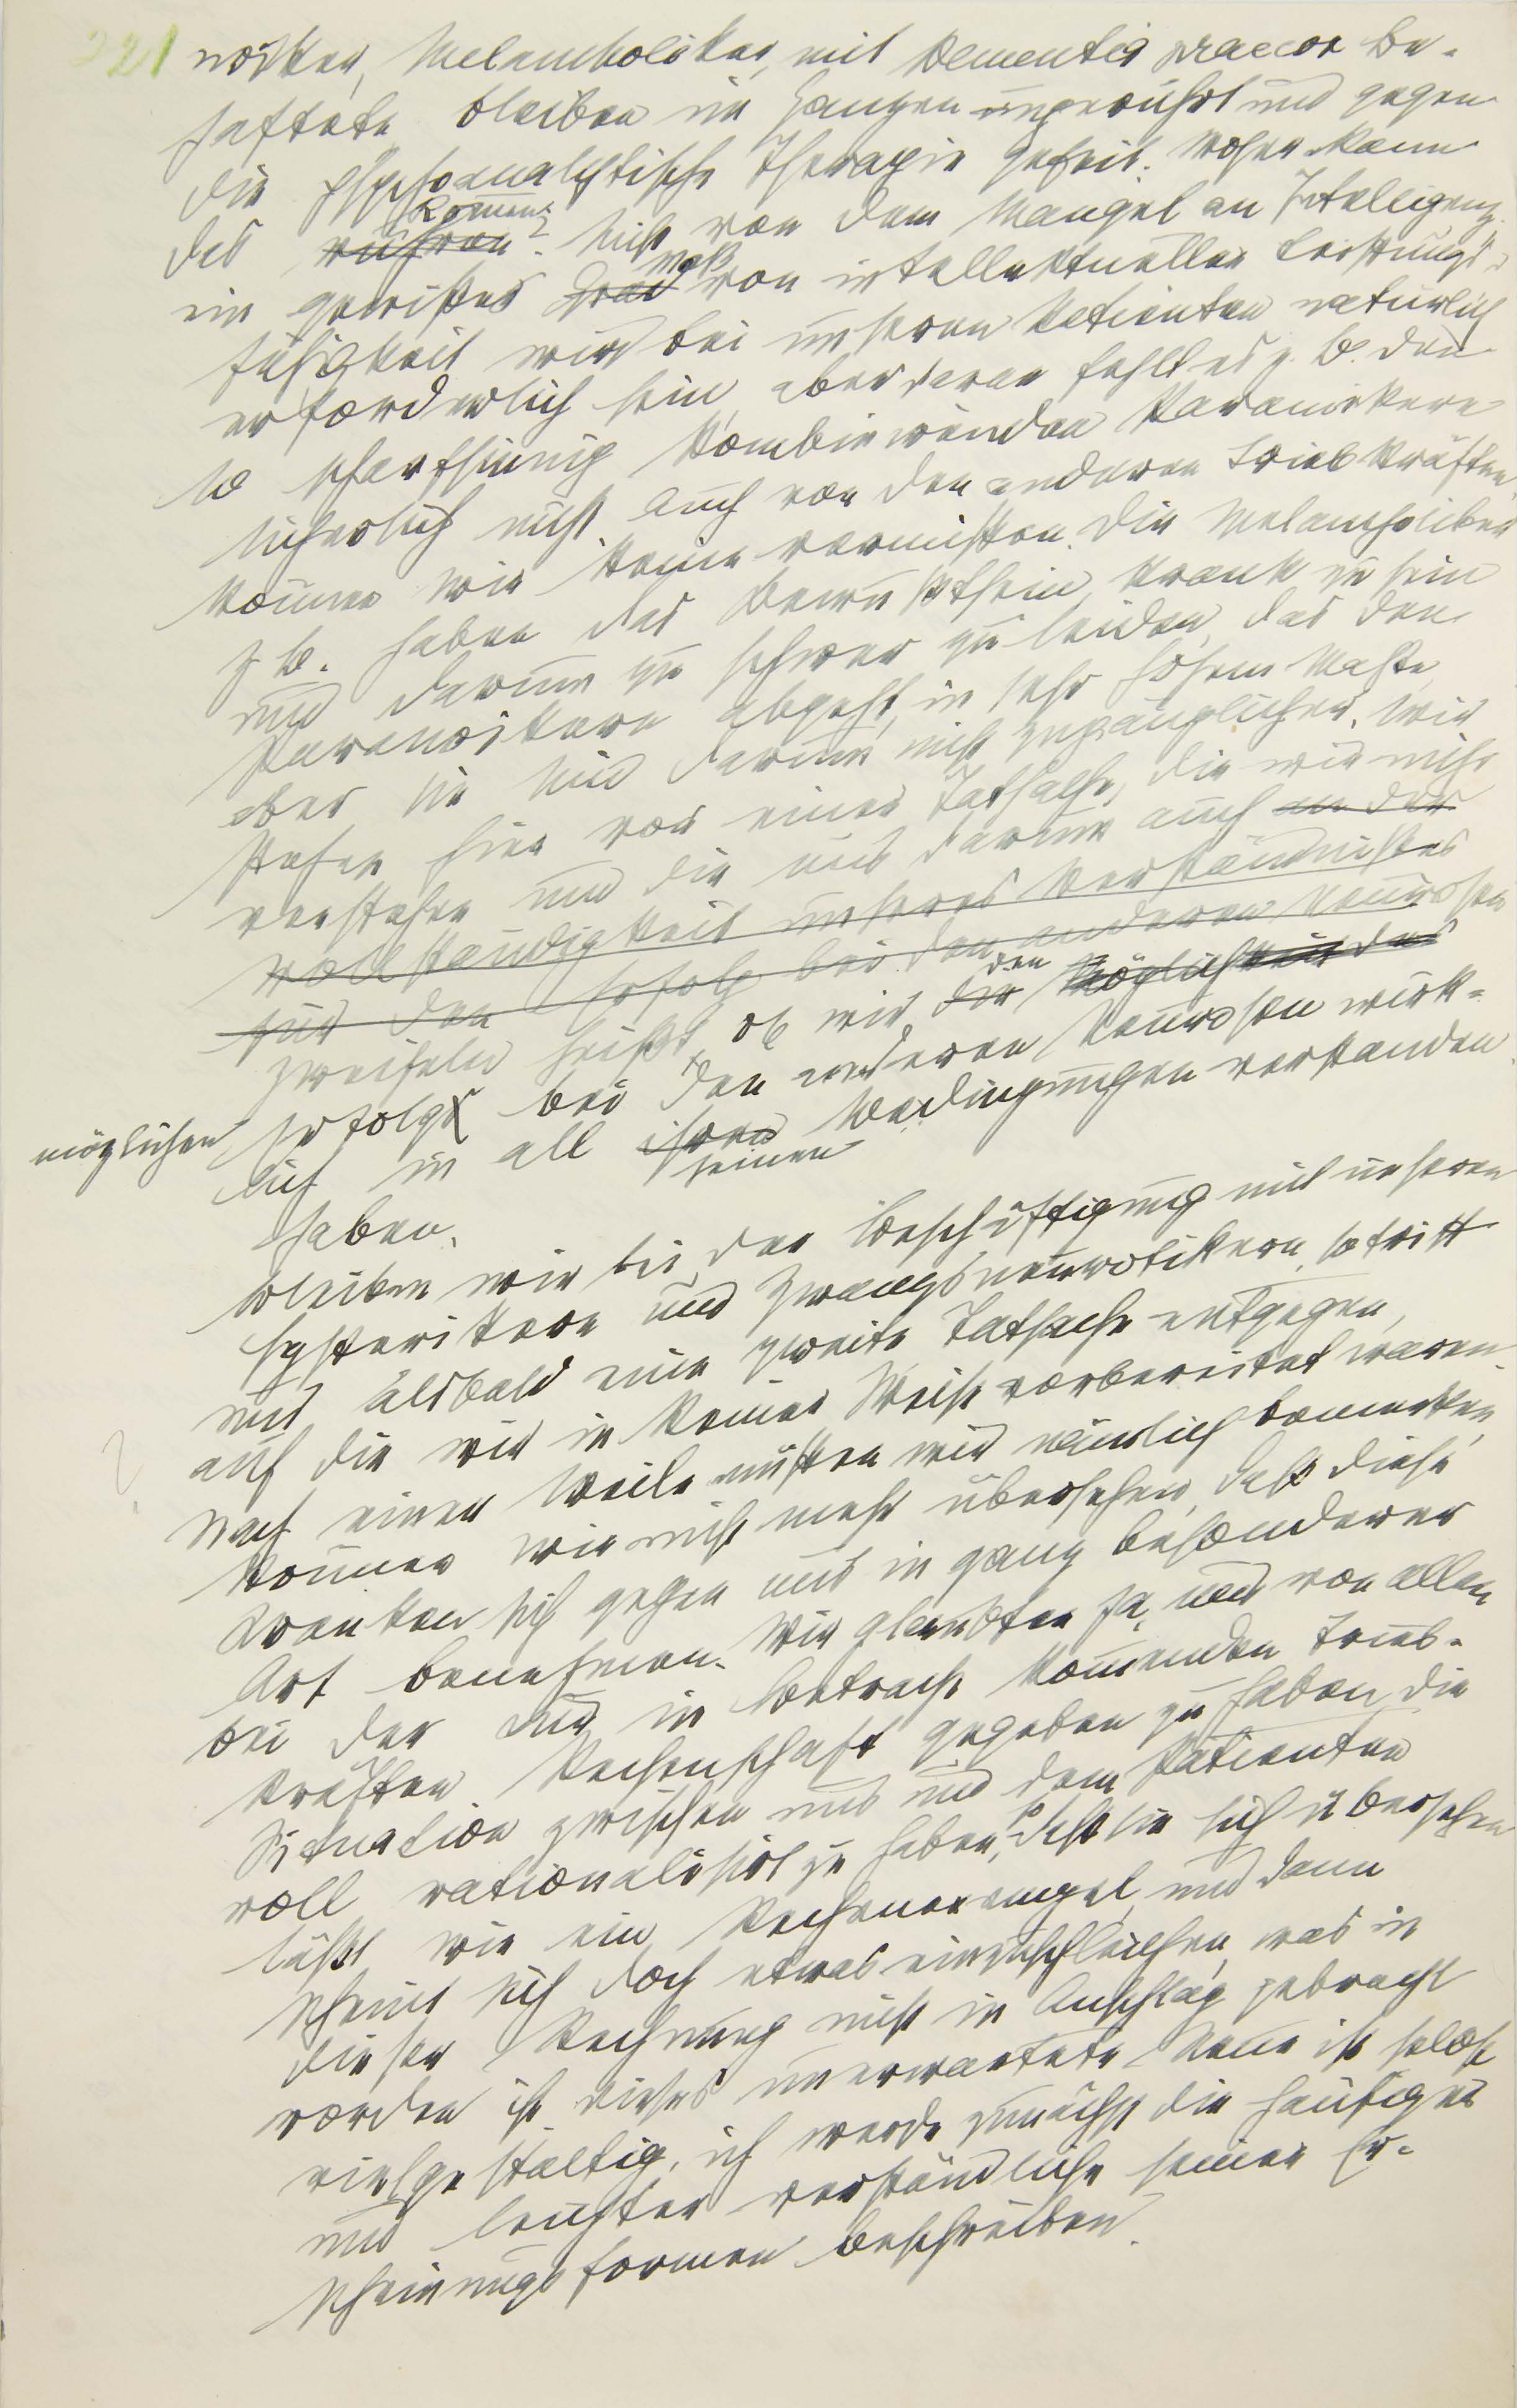 221 noiker, Melancholiker, mit Dementia praecox Be-
haftete bleiben im Ganzen ungerührt und gegen
die psychoanalytische Therapie gefeit. Woher kann
das rühren Kommen? Nicht von dem Mangel an Intelligenz,
ein gewißes Grad Maß von intellektueller Leistungs-
fähigkeit wird bei unseren Patienten natürlich
erforderlich sein, aber daran fehlt es z. B. den
so scharfsinnig kombinirenden Paranoikern
sicherlich nicht. Auch von den anderen Triebkräften
können wir keine vermissen. Die Melancholiker
z B. haben das Bewußtsein, krank zu sein
und darum so schwer zu leiden, das den
Paranoikern abgeht, in sehr hohem Maße,
aber sie sind darum nicht zugänglicher. Wir
stehen hier vor einer Tatsache, die wir nicht
verstehen und die uns darum auch an der
Vollständigkeit unseres Verständnißes
für den Erfolg bei den anderen Neurosen
zweifeln heißt, ob wir die den Möglichkeit des
möglichen Erfolgs bei den anderen Neurosen wirk-
lich in all ihren seinen Bedingungen verstanden
haben.
Bleiben wir bei der Beschäftigung mit unseren
Hysterikern und Zwangsneurotikern, so tritt
uns alsbald eine zweite Tatsache entgegen,
auf die wir in keiner Weise vorbereitet waren.
Nach einer Weile müßen wir nämlich bemerken,
können wir nicht mehr übersehen, daß diese
Kranken sich gegen uns in ganz besonderer
Art benehmen. Wir glaubten ja, uns von allen
bei der Kur in Betracht kommenden Trieb-
kräften Rechenschaft gegeben zu haben, die
Situation zwischen uns und dem Patienten
voll rationalisirt zu haben, so daß sie sich übersehen
läßt wie ein Rechenexempel, und dann
scheint sich doch etwas einzuschleichen, was in
dieser Rechnung nicht in Anschlag gebracht
worden ist. Dieses unerwartete Neue ist selbst
vielgestaltig, ich werde zunächst die häufigere
und leichter verständliche seiner Er-
scheinungsformen beschreiben.